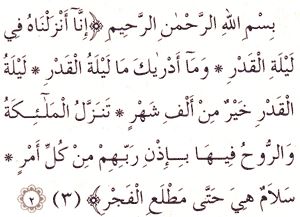 بِسْمِ اللهِ الرَّحْمٰنِ الرَّحِيمِ ﴿إِنَّآ أَنْزَلْنَاهُ فِي
لَيْلَةِ الْقَدْرِ * وَمَآ أَدْرٰيكَ مَا لَيْلَةُ الْقَدْرِ * لَيْلَةُ
الْقَدْرِ خَيْرٌ مِنْ أَلْفِ شَهْرٍ * تَنَزَّلُ الْمَلٰٓئِكَةُ
وَالرُّوحُ فِيهَا بِإِذْنِ رَبِّهِمْ مِنْ كُلِّ أَمْرٍ *
سَلاَمٌ هِيَ حَتَّى مَطْلَعِ الْفَجْرِ﴾ (٣) ٢